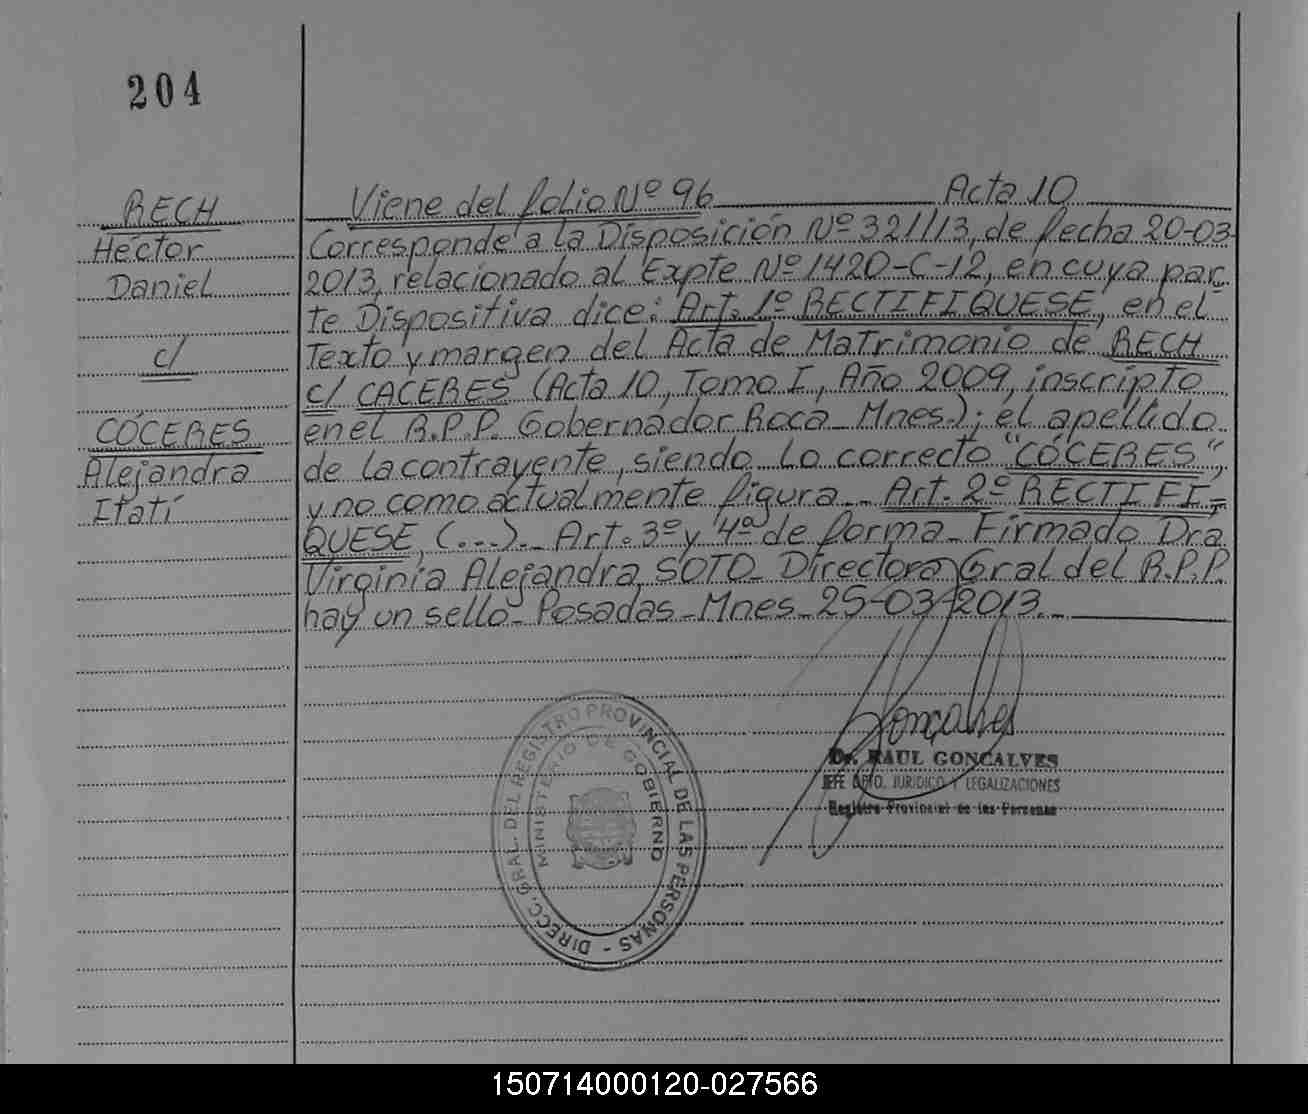 204
RECH
Héctor
Daniel
c/
CÓCERES
Alejandra
Itatí
Viene del folio Nº 96 Acta 10
Corresponde a la Disposición Nº 321/13, de fecha 20-03-
2013, relacionado al Expte Nº 1420-C-12, en cuya par-
te Dispositiva dice: Art. 1º RECTIFIQUESE, en el
Texto y margen del Acta de Matrimonio de RECH
c/ CACERES (Acta 10, Tomo I, Año 2009, inscripto
en el R.P.P. Gobernador Roca - Mnes.); el apellido
de la contrayente, siendo lo correcto "CÓCERES",
y no como actualmente figura - Art. 2º RECTIFI-
QUESE, (...). - Art. 3º y 4º de forma - Firmado Dra
Virginia Alejandra SOTO - Directora Gral del R.P.P.
hay un sello - Posadas - Mnes - 25-03-2013. -
Goncalves
Dr. RAUL GONCALVES
JEFE DPTO. JURIDICO Y LEGALIZACIONES
Registro Provincial de las Personas
DIRECC. GRAL. DEL REGISTRO PROVINCIAL DE LAS PERSONAS -
MINISTERIO DE GOBIERNO
150714000120-027566